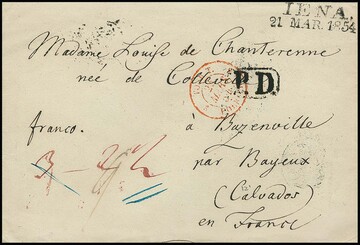 IENA.
21 MAR. 1854
Madame Louise de Chanterenne
née de Colleville
P.D.
franco.
à Bazenville
3
par Bayeux
(Calvados)
en France